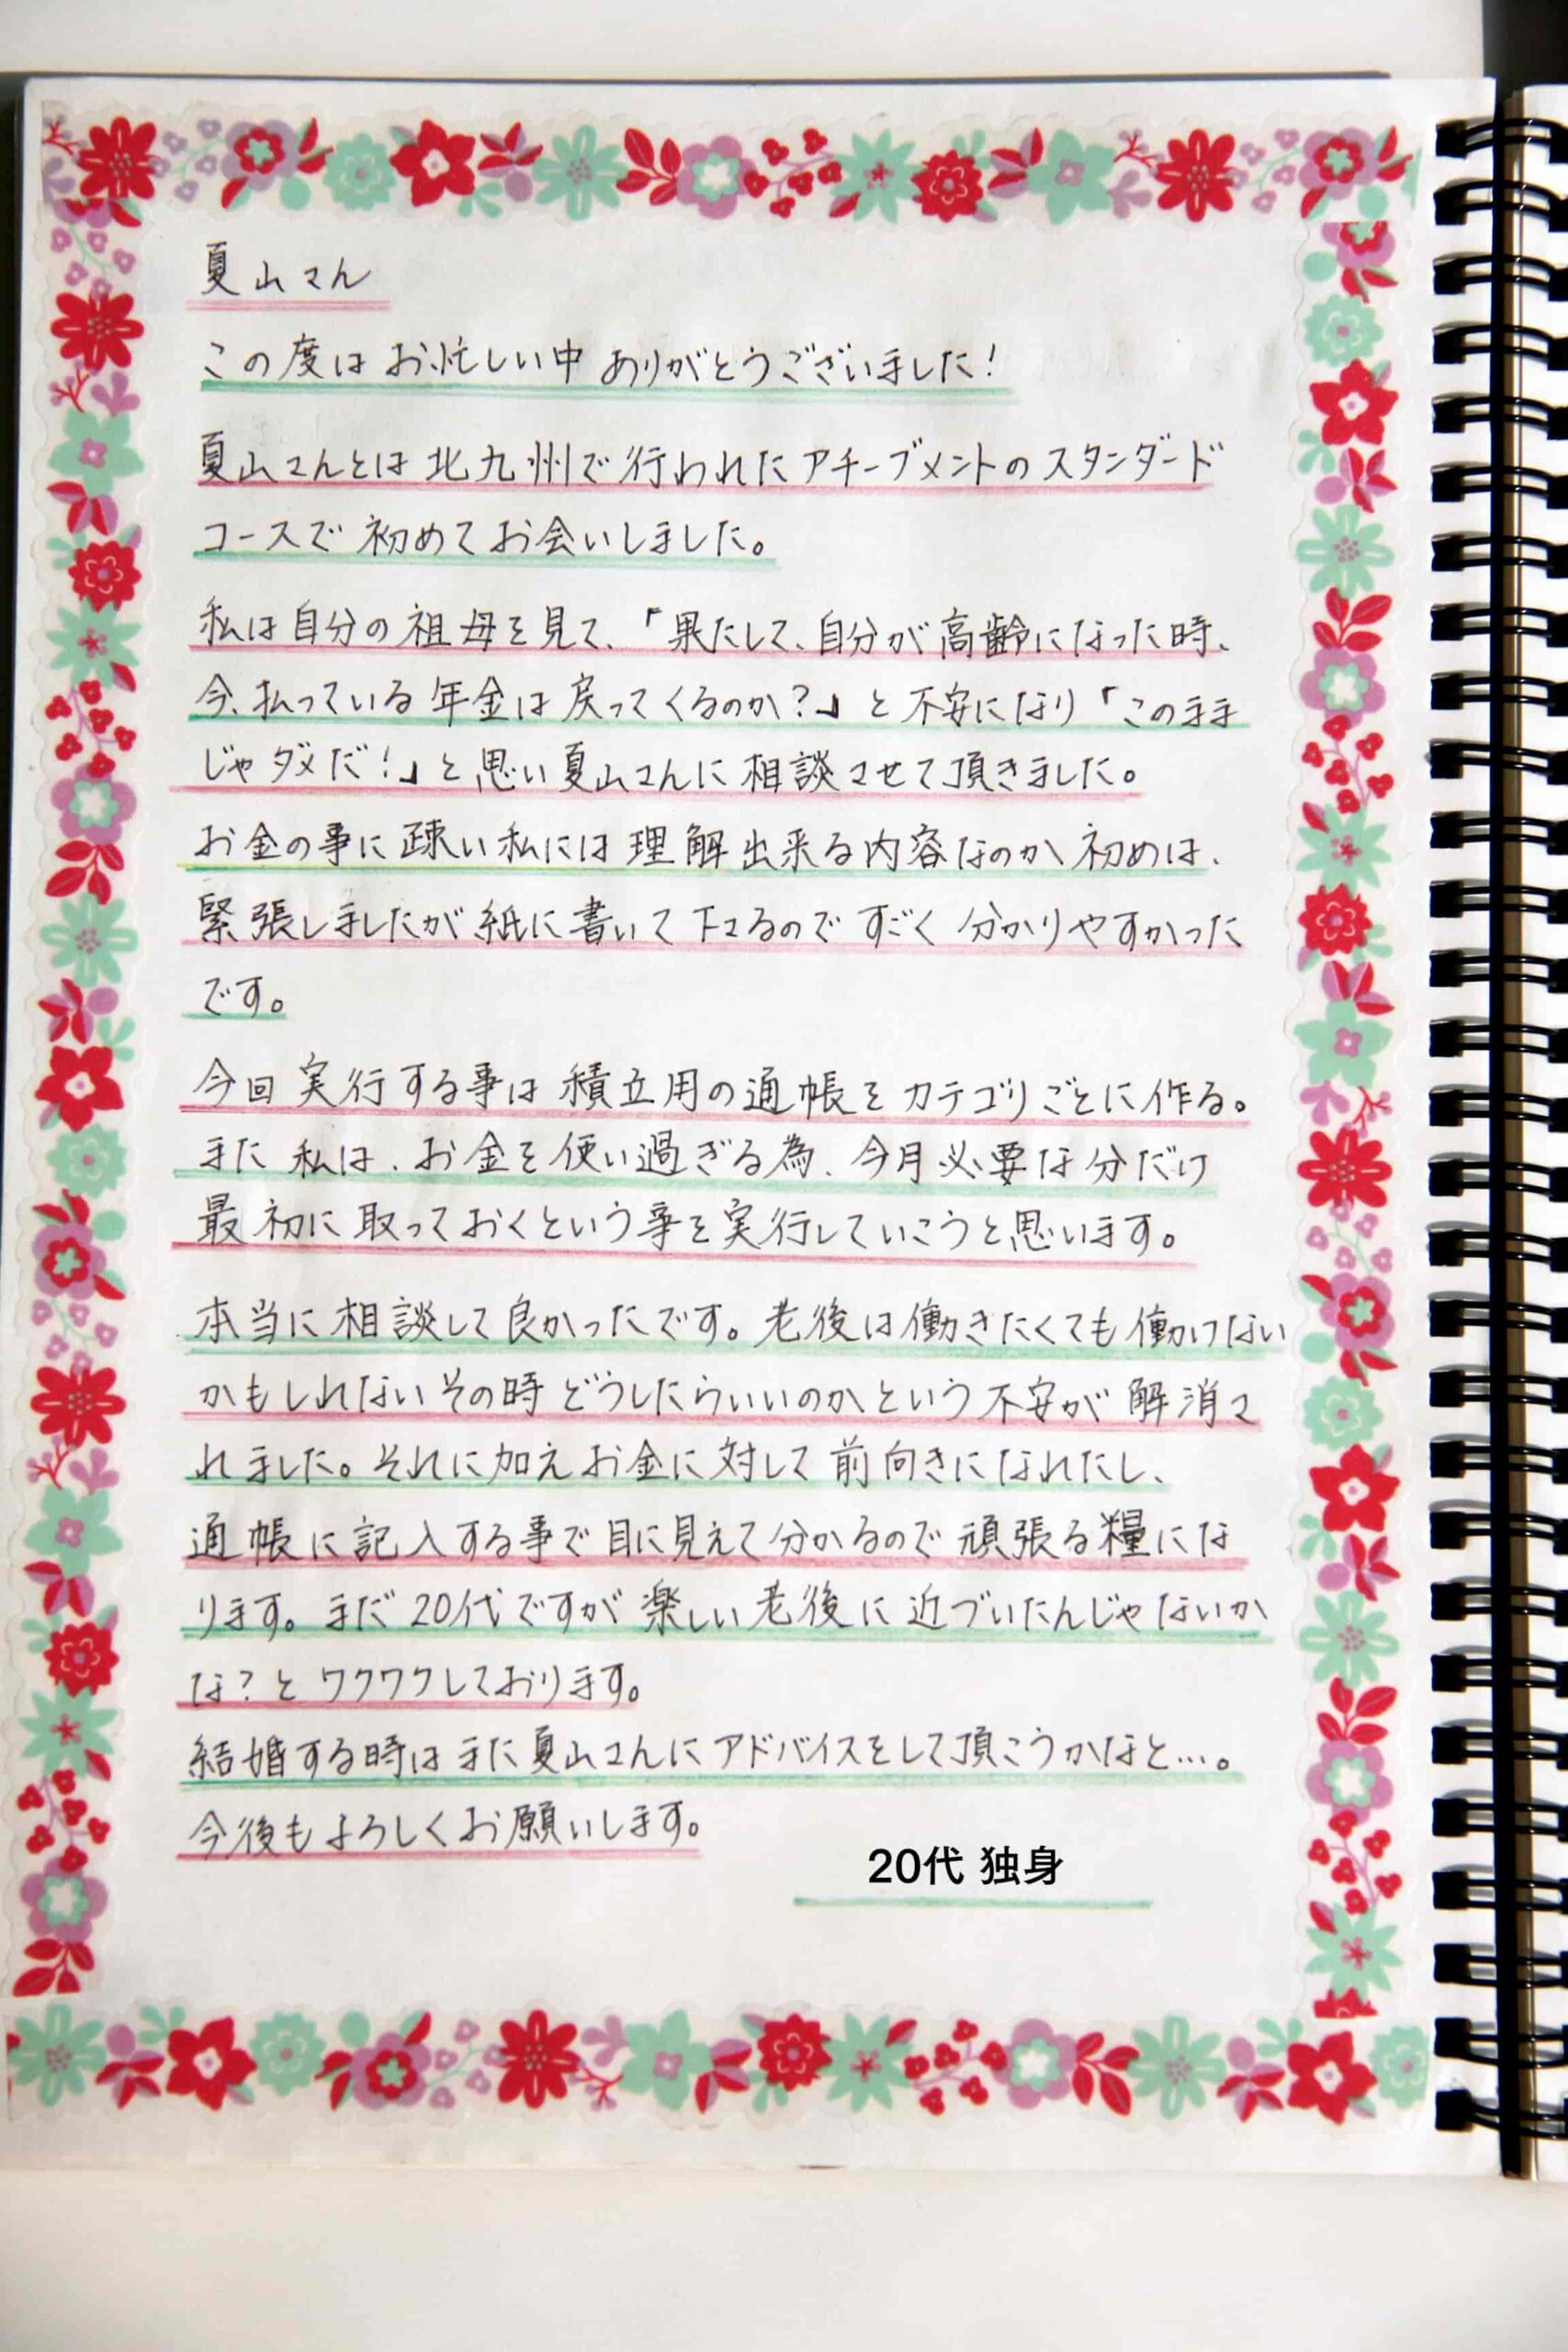 夏山さん
この度は お忙しい中 ありがとうございました!
夏山さんとは 北九州で 行われた アチーブメントの スタンダード
コースで 初めて お会いしました。
私は 自分の 祖母を 見て、「果たして、自分が 高齢になった時、
今、払っている 年金は 戻って くるのか?」と 不安になり「このまま
じゃダメだ!」と 思い 夏山さんに 相談させて頂きました。
お金の事に 疎い 私には 理解出来る内容なのか 初めは、
緊張しましたが 紙に書いて下さるので すごく 分かりやすかった
です。
今回 実行する事は 積立用の通帳を カテゴリごとに作る。
また 私は、お金を 使い過ぎる為、今月必要な分だけ
最初に 取っておくという事を 実行していこうと思います。
本当に 相談して 良かったです。老後は働きたくても働けない
かもしれない その時 どうしたらいいのか という 不安が 解消さ
れました。それに加え お金に 対して 前向きになれたし、
通帳に記入する事で 目に見えて 分かるので 頑張る糧にな
ります。まだ 20代ですが 楽しい 老後に 近づいたんじゃないか
な?と ワクワクしております。
結婚する時は また 夏山さんに アドバイスをして頂こうかなと…。
今後も よろしく お願いします。
20代 独身